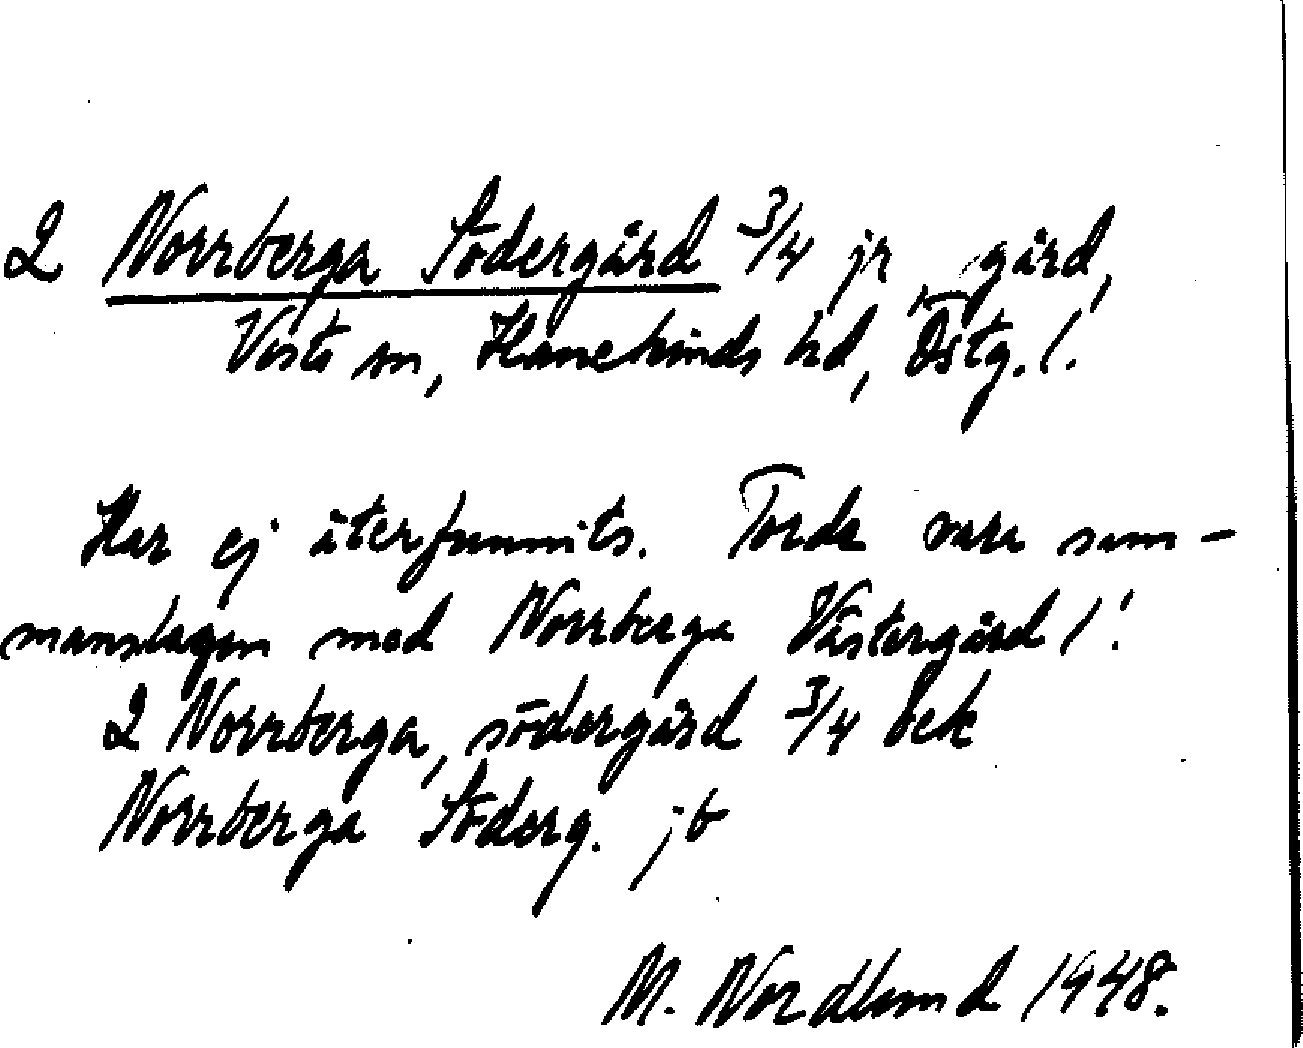 2 Norrberga Södergård 3/4 jr gård,
Vists sn, Hanekinds hd, Östg. l.
Har ej återfunnits. Torde vara sam-
manslagen med Norrberga Västergård /!
2 Norrberga, södergård 3/4 bek
Norrberga Söderg. jb
M. Nordlund 1948.